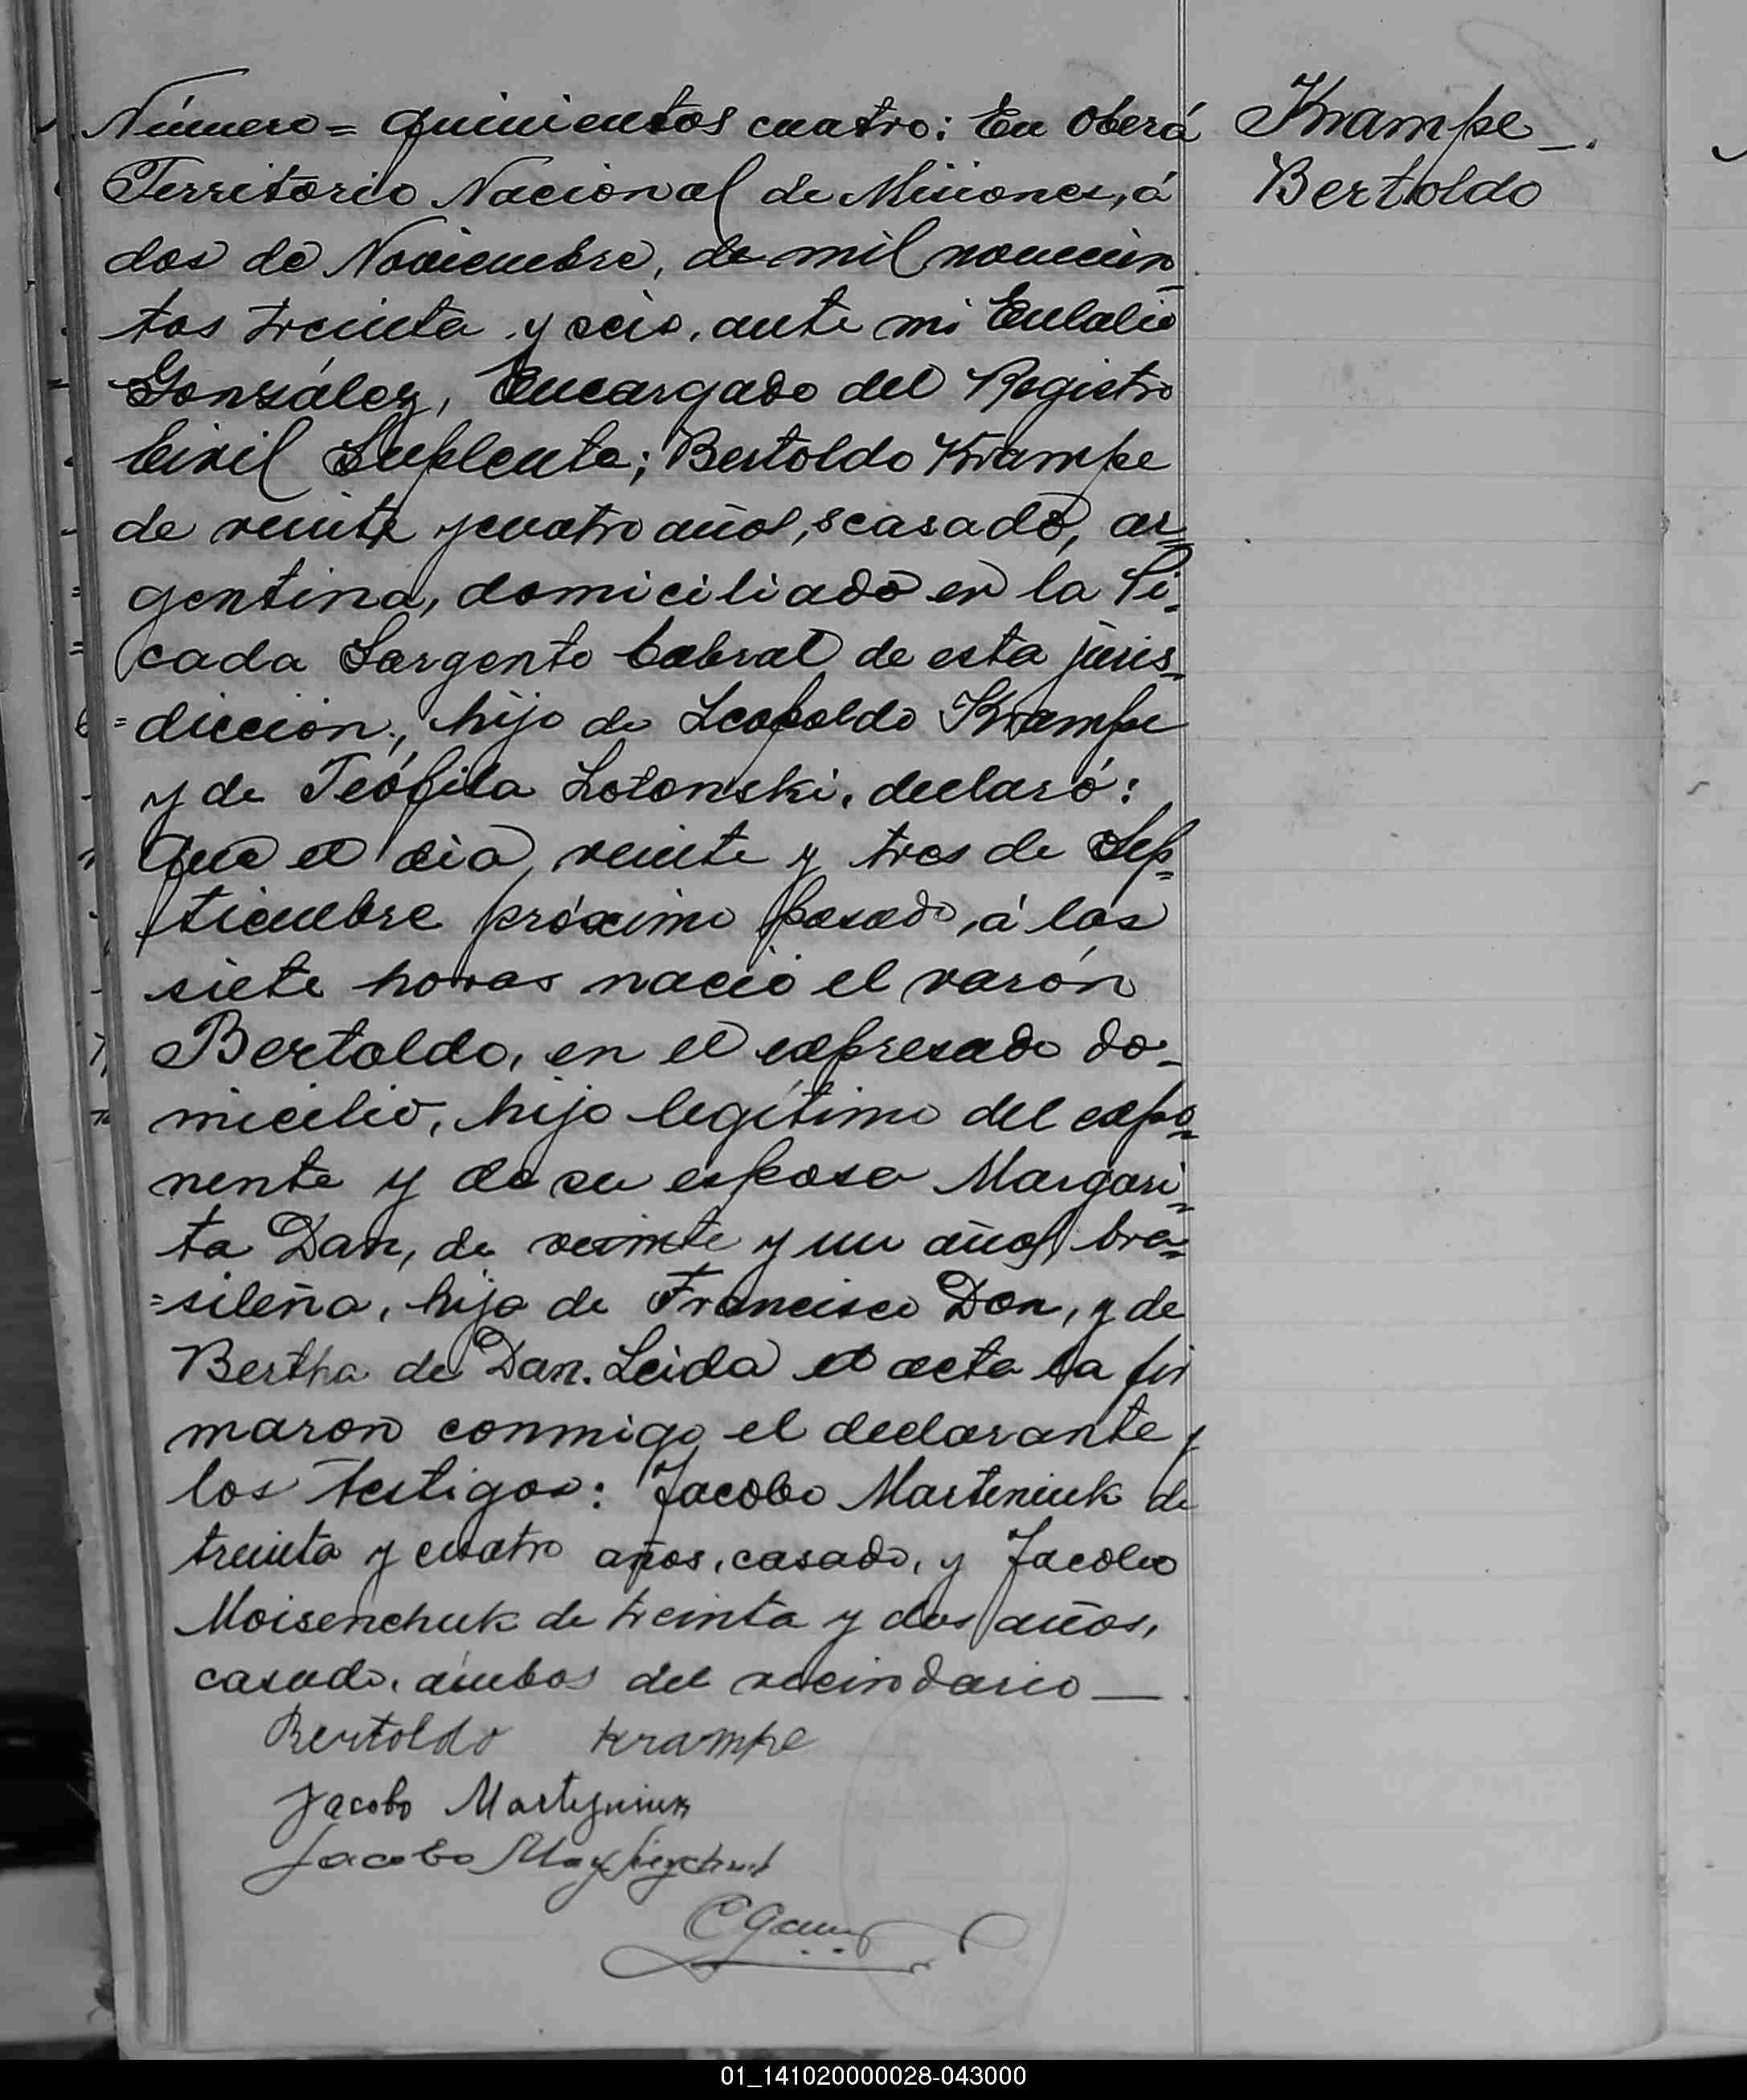 Número = quinientos cuatro: En Oberá
Territorio Nacional de Misiones, á
dos de Noviembre, de mil novecien
tos treinta y seis, ante mi Eulalio
González, Encargado del Registro
Civil Suplente; Bertoldo Krampe
de veinte y cuatro años, casado, ar=
gentina, domiciliado en la Pi=
cada Sargento Cabral de esta juris=
=dicción, hijo de Leopoldo Krampe
y de Teófila Lotonski, declaró:
Que el dia, veinte y tres de Sep=
tiembre próximo pasado, á las
siete horas nació el varón
Bertoldo, en el expresado do-
micilio, hijo legítimo del expo=
nente y de su esposa Margari=
ta Dan, de veinte y un años, bra=
=sileña, hija de Francisco Dan, y de
Bertha de Dan. Leida el acta la fir
maron conmigo el declarante y
los testigos: Jacobo Marteniuk de
treinta y cuatro años, casado, y Jacobo
Moisenchuk de treinta y dos años,
casado, ámbos del vecindario —
Bertoldo Krampe
Jacobo
Jacobo
Krampe —.
Bertoldo
01_141020000028-043000